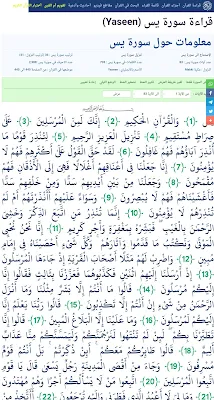 قراءة سورة يس (Yaseen)
معلومات حول سورة يس
﴿1﴾ وَالْقُرْآنِ الْحَكِيمِ ﴿2﴾ إِنَّكَ لَمِنَ الْمُرْسَلِينَ ﴿3﴾ عَلَى
صِرَاطٍ مُسْتَقِيمٍ ﴿4﴾ تَنْزِيلَ الْعَزِيزِ الرَّحِيمِ ﴿5﴾ لِتُنْذِرَ قَوْمًا مَا
أُنْذِرَ آبَاؤُهُمْ فَهُمْ غَافِلُونَ ﴿6﴾ لَقَدْ حَقَّ الْقَوْلُ عَلَى أَكْثَرِهِمْ فَهُمْ لَا
يُؤْمِنُونَ ﴿7﴾ إِنَّا جَعَلْنَا فِي أَعْنَاقِهِمْ أَغْلَالًا فَهِيَ إِلَى الْأَذْقَانِ فَهُمْ
مُقْمَحُونَ ﴿8﴾ وَجَعَلْنَا مِنْ بَيْنِ أَيْدِيهِمْ سَدًّا وَمِنْ خَلْفِهِمْ سَدًّا
فَأَغْشَيْنَاهُمْ فَهُمْ لَا يُبْصِرُونَ ﴿9﴾ وَسَوَاءٌ عَلَيْهِمْ أَأَنْذَرْتَهُمْ أَمْ لَمْ
تُنْذِرْهُمْ لَا يُؤْمِنُونَ ﴿10﴾ إِنَّمَا تُنْذِرُ مَنِ اتَّبَعَ الذِّكْرَ وَخَشِيَ
الرَّحْمَنَ بِالْغَيْبِ فَبَشِّرْهُ بِمَغْفِرَةٍ وَأَجْرٍ كَرِيمٍ ﴿11﴾ إِنَّا نَحْنُ نُحْيِي
الْمَوْتَى وَنَكْتُبُ مَا قَدَّمُوا وَآثَارَهُمْ وَكُلَّ شَيْءٍ أَحْصَيْنَاهُ فِي إِمَامٍ
مُبِينٍ ﴿12﴾ وَاضْرِبْ لَهُمْ مَثَلًا أَصْحَابَ الْقَرْيَةِ إِذْ جَاءَهَا الْمُرْسَلُونَ
﴿13﴾ إِذْ أَرْسَلْنَا إِلَيْهِمُ اثْنَيْنِ فَكَذَّبُوهُمَا فَعَزَّزْنَا بِثَالِثٍ فَقَالُوا إِنَّا
إِلَيْكُمْ مُرْسَلُونَ ﴿14﴾ قَالُوا مَا أَنْتُمْ إِلَّا بَشَرٌ مِثْلُنَا وَمَا أَنْزَلَ
الرَّحْمَنُ مِنْ شَيْءٍ إِنْ أَنْتُمْ إِلَّا تَكْذِبُونَ ﴿15﴾ قَالُوا رَبُّنَا يَعْلَمُ إِنَّا
إِلَيْكُمْ لَمُرْسَلُونَ ﴿16﴾ وَمَا عَلَيْنَا إِلَّا الْبَلَاغُ الْمُبِينُ ﴿17﴾ قَالُوا إِنَّا
تَطَيَّرْنَا بِكُمْ لَئِنْ لَمْ تَنْتَهُوا لَنَرْجُمَنَّكُمْ وَلَيَمَسَّنَّكُمْ مِنَّا عَذَابٌ
أَلِيمٌ ﴿18﴾ قَالُوا طَائِرُكُمْ مَعَكُمْ أَئِنْ ذُكِّرْتُمْ بَلْ أَنْتُمْ قَوْمٌ
مُسْرِفُونَ ﴿19﴾ وَجَاءَ مِنْ أَقْصَى الْمَدِينَةِ رَجُلٌ يَسْعَى قَالَ يَا قَوْمِ
اتَّبِعُوا الْمُرْسَلِينَ ﴿20﴾ اتَّبِعُوا مَنْ لَا يَسْأَلُكُمْ أَجْرًا وَهُمْ مُهْتَدُونَ
﴿21﴾ وَمَا لِيَ لَا أَعْبُدُ الَّذِي فَطَرَنِي وَإِلَيْهِ تُرْجَعُونَ ﴿22﴾ أَأَتَّخِذُ مِنْ